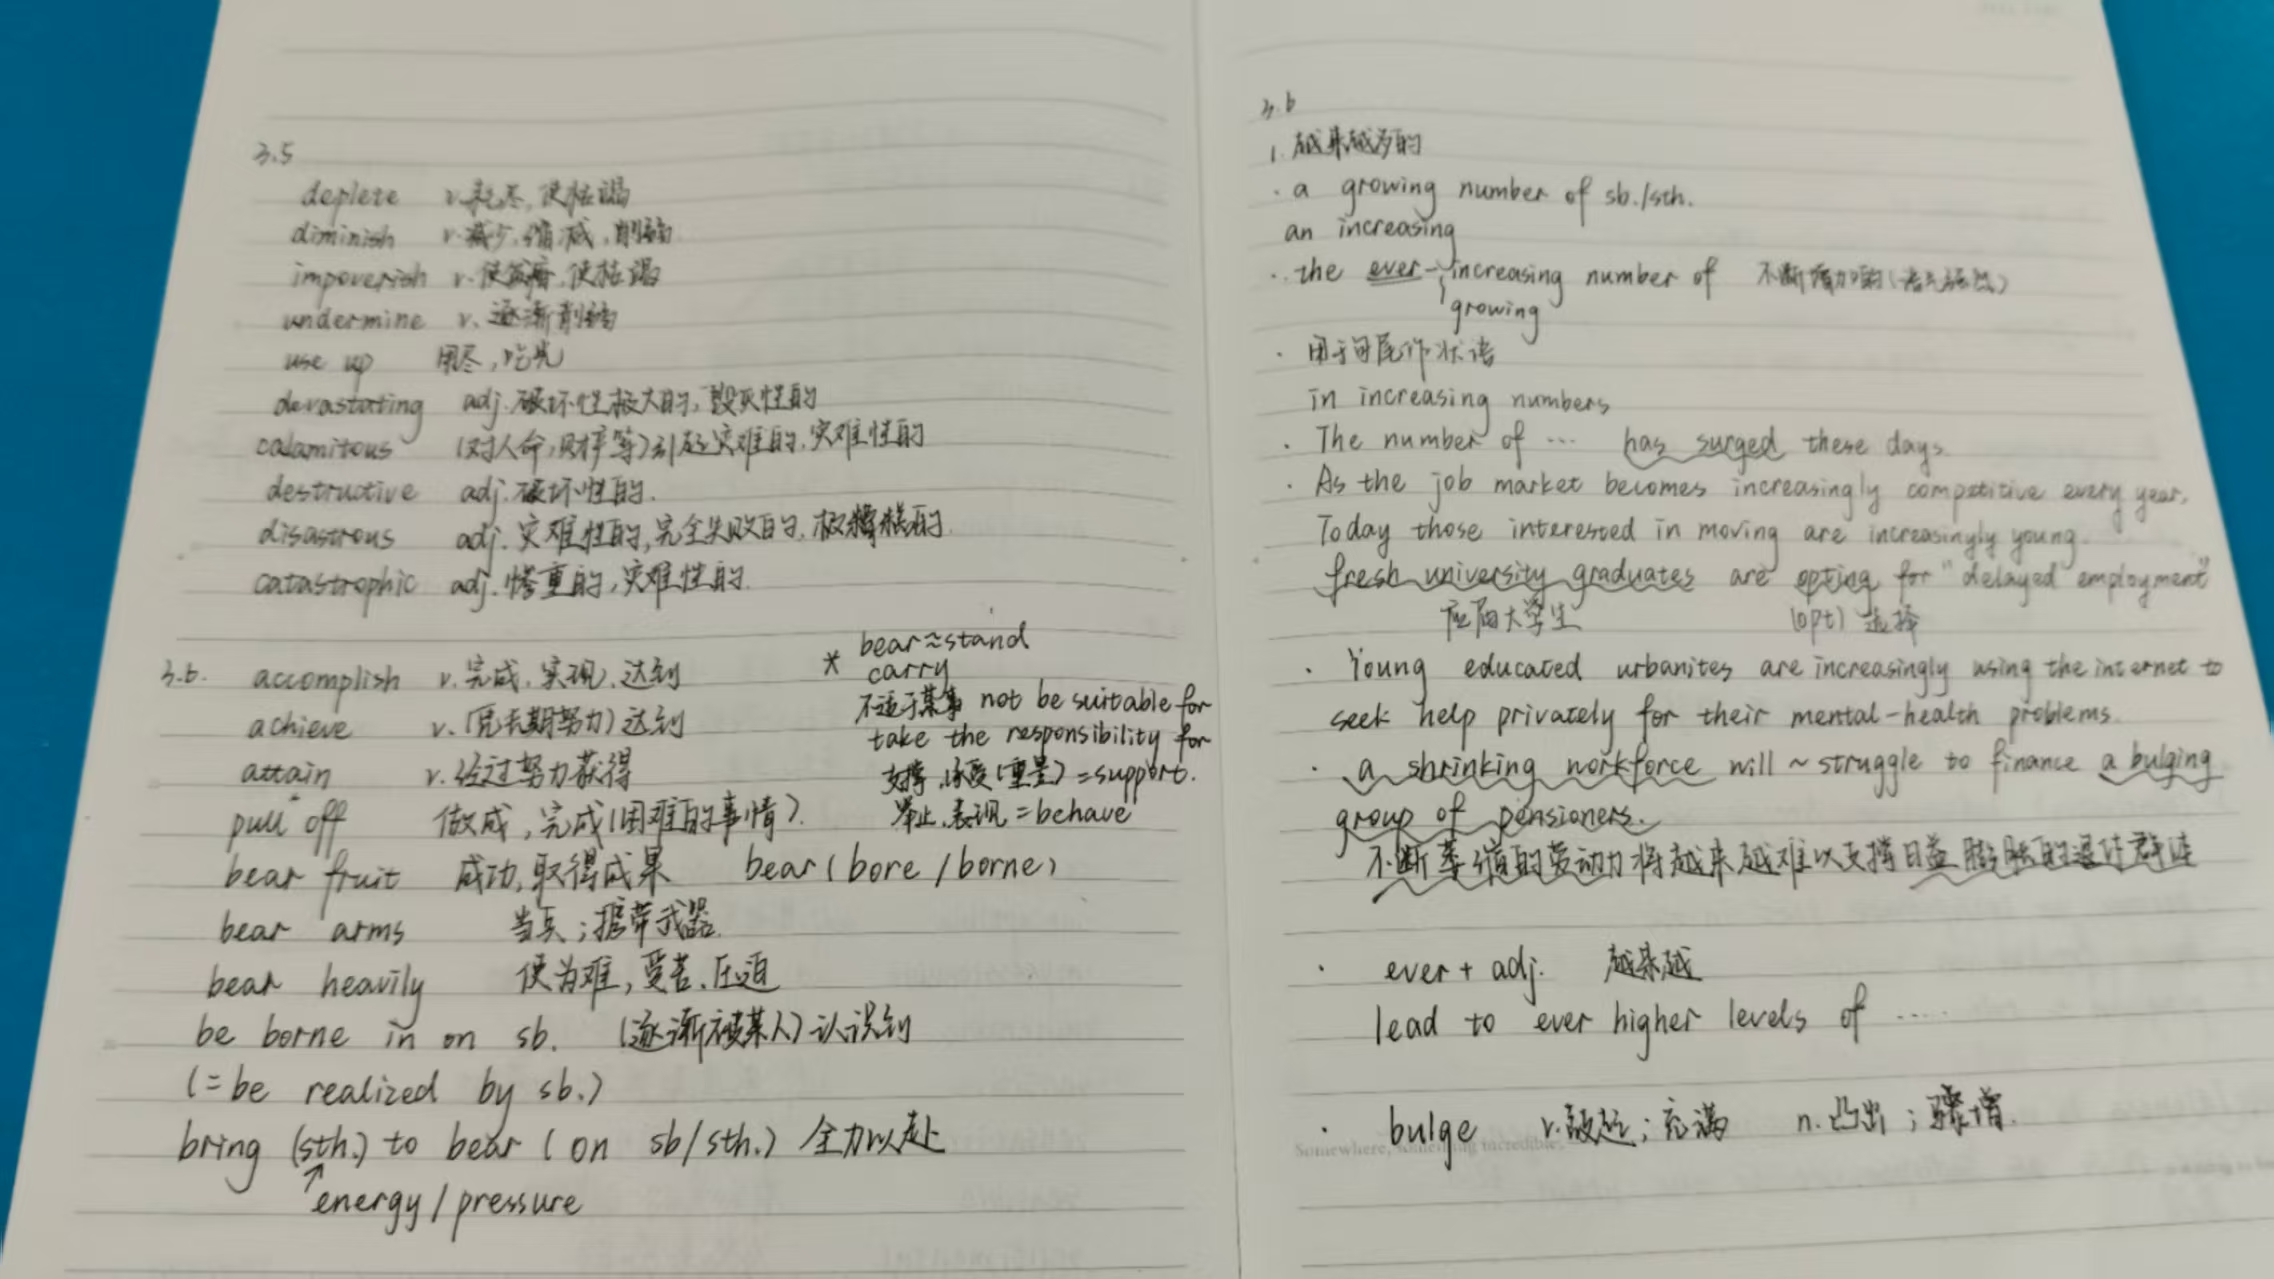 3.5
deplete v.耗尽,使枯竭
diminish v.减少,缩减,削弱
impoverish v.使贫瘠,使枯竭
undermine v.逐渐削弱
use up 用尽,吃光
devastating adj.破坏性极大的,毁灭性的
calamitous (对人命,财产等)引起灾难的,灾难性的
destructive adj.破坏性的.
disastrous adj.灾难性的,完全失败的,极糟糕的
catastrophic adj.惨重的,灾难性的.
3.6. accomplish v.完成,实现,达到
achieve v.(凭长期努力)达到
attain v.经过努力获得
pull off 做成,完成(困难的事情).
bear fruit 成功,取得成果 bear(bore/borne)
bear arms 当兵;携带武器.
bear heavily 使为难,受苦,压迫
be borne in on sb. (逐渐被某人)认识到
(=be realized by sb.)
bring (sth.) to bear (on sb/sth.) 全力以赴
↑energy/pressure
* bear≈stand
carry
不适于某事 not be suitable for
take the responsibility for
支撑,承受(重量)=support.
举止,表现=behave
3.6
1.越来越多的
· a growing number of sb./sth.
an increasing
· the ever-increasing number of 不断增加的(语气强烈)
growing
· 用于句尾作状语
in increasing numbers
· The number of ··· has surged these days.
· As the job market becomes increasingly competitive every year,
Today those interested in moving are increasingly young.
fresh university graduates are opting for "delayed employment"
应届大学生 (opt) 选择
· Young educated urbanites are increasingly using the internet to
seek help privately for their mental-health problems.
· a shrinking workforce will ~ struggle to finance a bulging
group of pensioners.
不断萎缩的劳动力将越来越难以支撑日益膨胀的退休群体
· ever + adj. 越来越
lead to ever higher levels of ·····
· bulge v.鼓起;充满 n.凸出;骤增.
Somewhere, something incredible